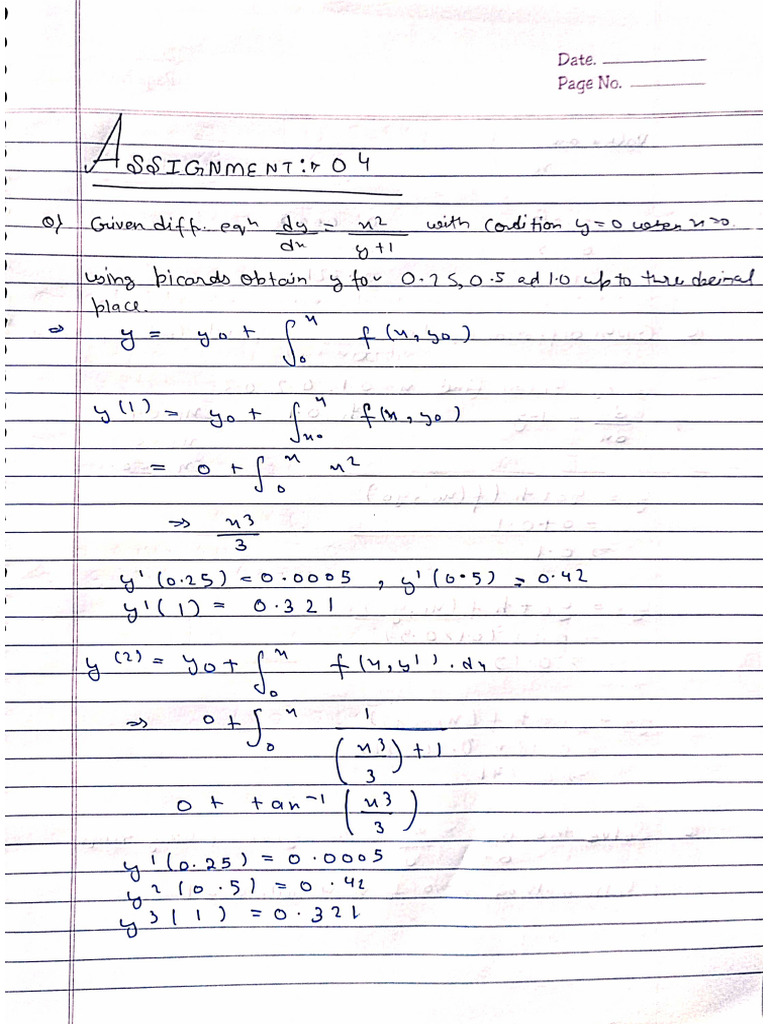 Date.
Page No.
ASSIGNMENT:→ 04
Q) Given diff. eqⁿ dy/dx = x²/(y+1) with condition y=0 when x=0.
using picards obtain y for 0.25, 0.5 ad 1.0 up to three decimal
place.
⇒ y = y0 + ∫₀ˣ f(x, y0)
y(1) = y0 + ∫ₓ₀ˣ f(x, y0)
= 0 + ∫₀ˣ x²
⇒ x3/3
y'(0.25) = 0.0005, y'(0.5) = 0.42
y'(1) = 0.321
y(2) = y0 + ∫₀ˣ f(x, y'). dx
⇒ 0 + ∫₀ˣ 1/((x3/3) + 1)
0 + tan⁻¹ (x3/3)
y'(0.25) = 0.0005
y2(0.5) = 0.42
y3(1) = 0.321